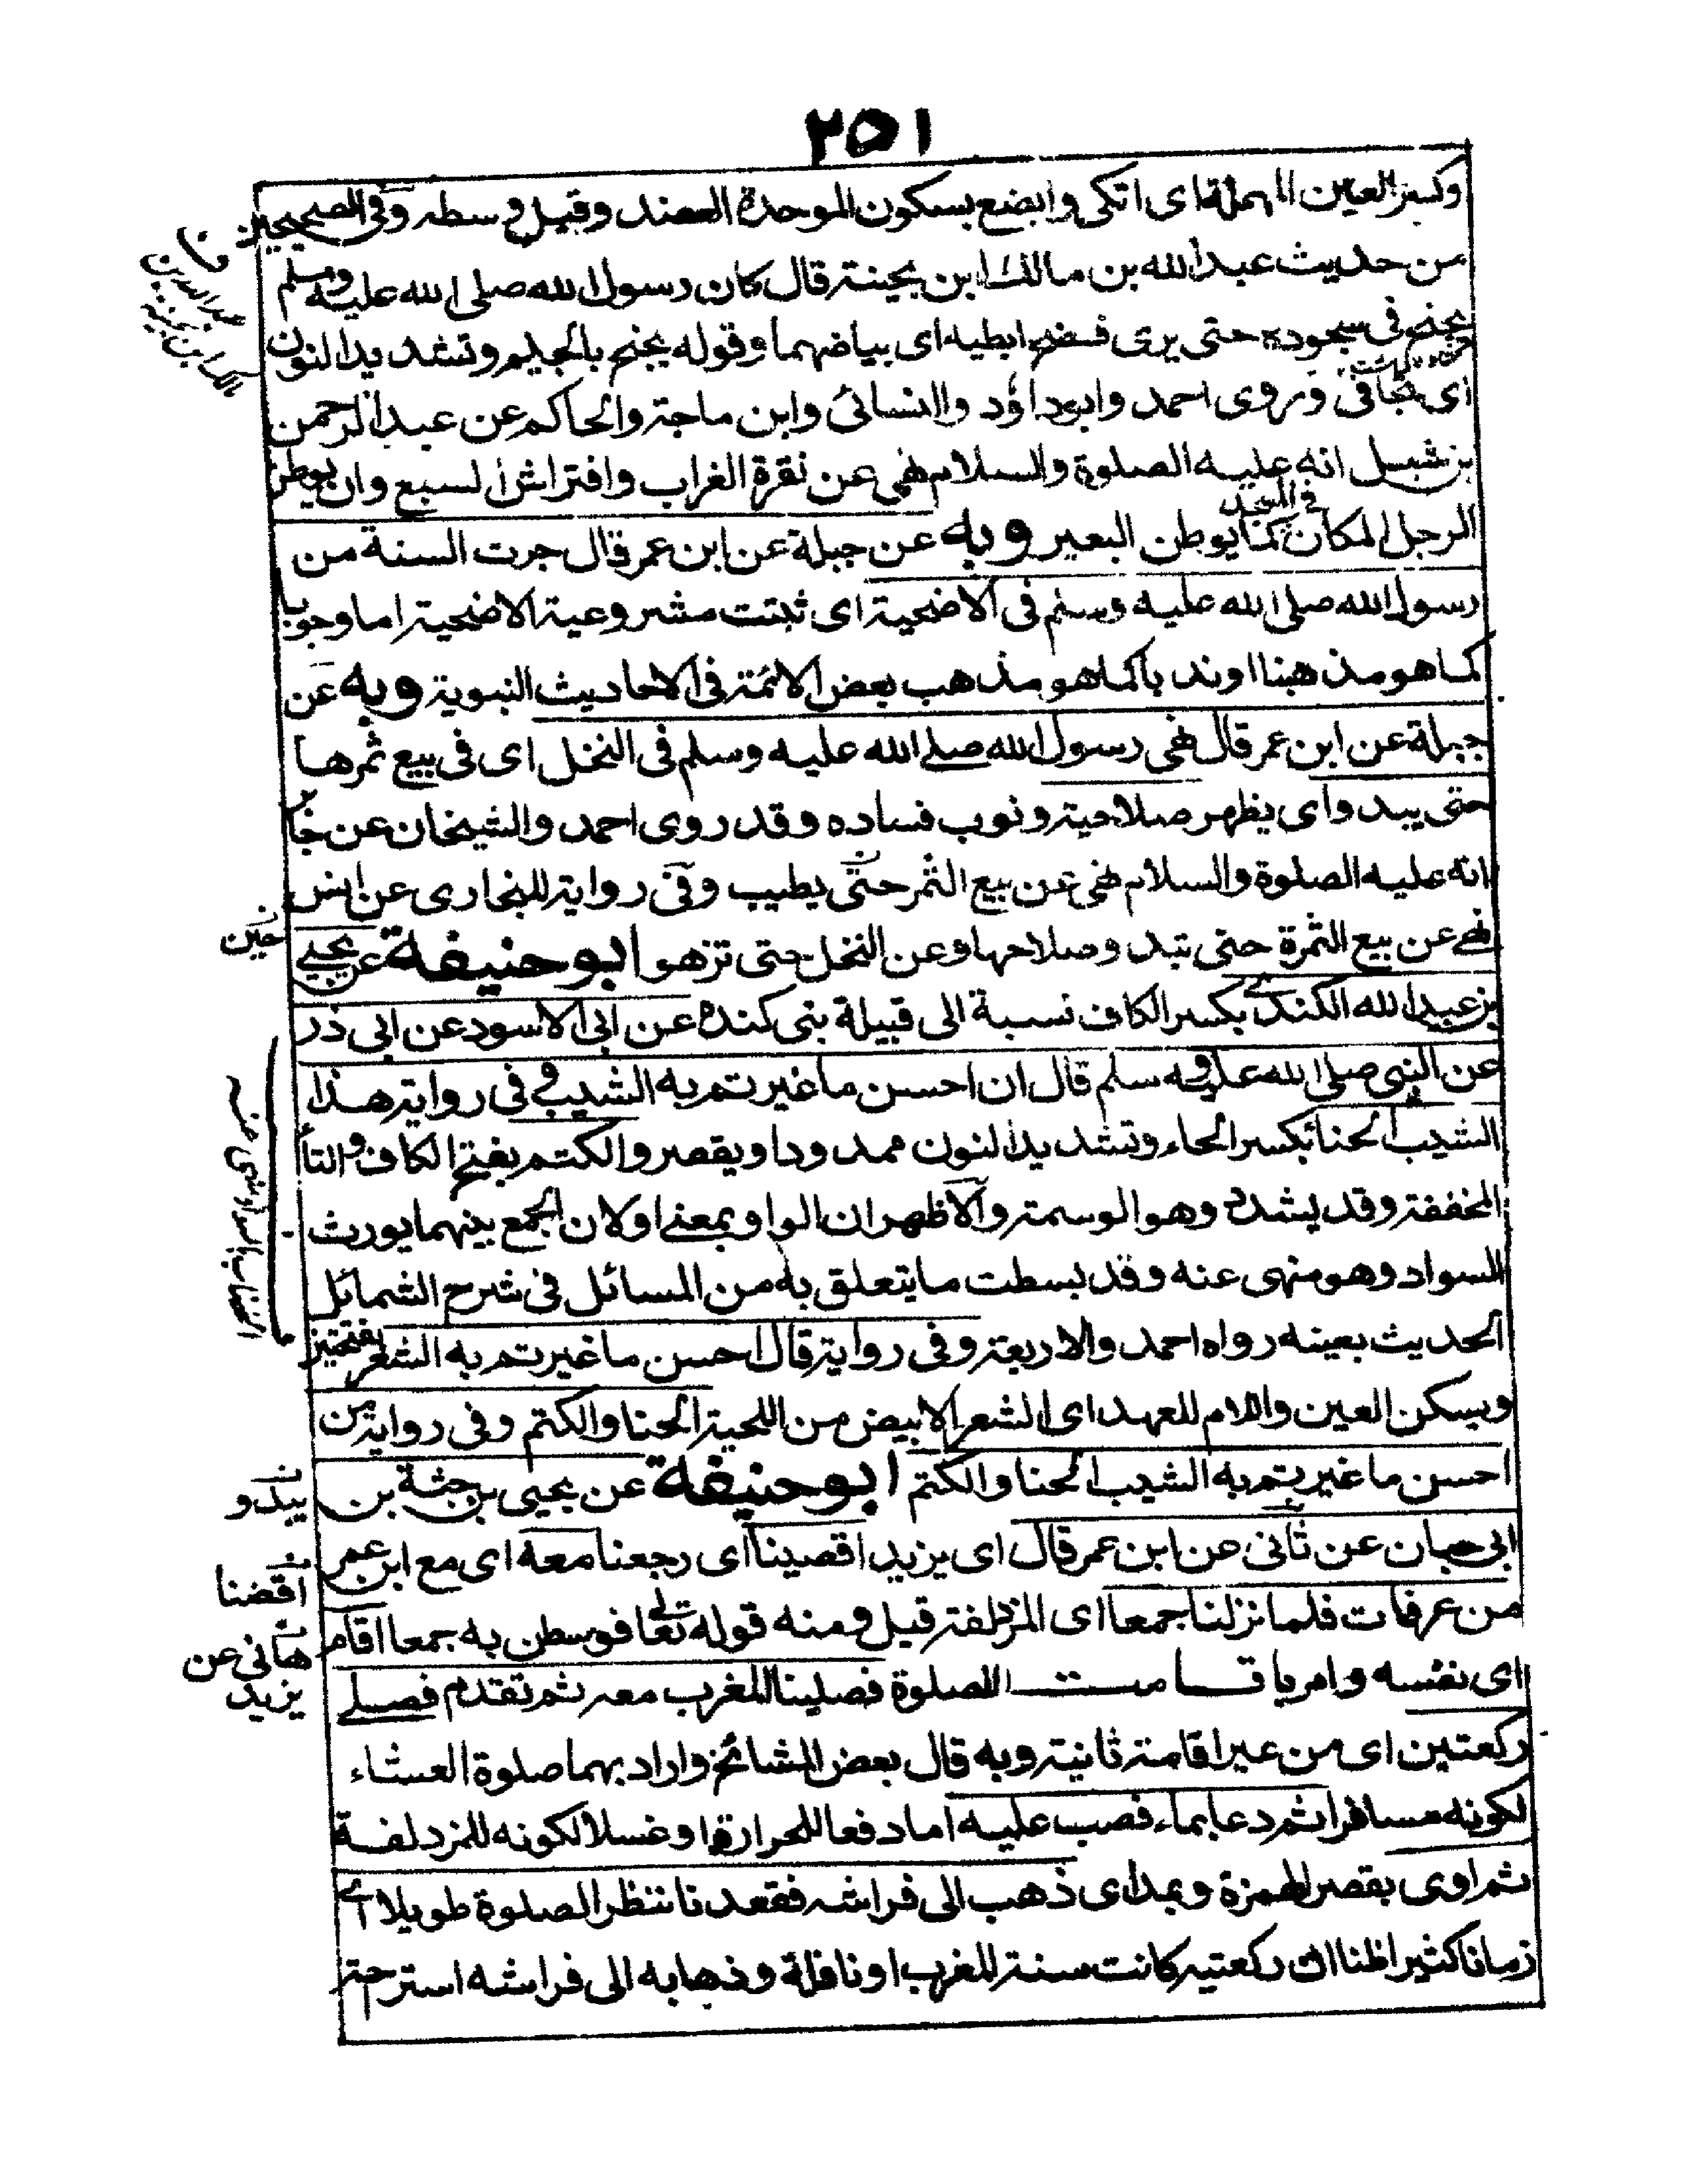 ٢٥١
وكسر العين المهملة اى اتكى وابضع بسكون الموحدة العضد وقيل وسطه وفى الصحيحين
من حديث عبدالله بن مالك ابن بحينة قال كان رسول الله صلى الله عليه وسلم
يجنح فى سجوده حتى يرى وضح ابطيه اى بياضهما وقوله يجنح بالجيم وتشديد النون
اى يجافى وروى احمد وابوداؤد والنسائى وابن ماجة والحاكم عن عبدالرحمن
بن شبل انه عليه الصلوة والسلام نهى عن نقرة الغراب وافتراش السبع وان يوطن
الرجل المكان فى المسجد كما يوطن البعير وبه عن جبلة عن ابن عمر قال جرت السنة من
رسول الله صلى الله عليه وسلم فى الاضحية اى ثبتت مشروعية الاضحية اما وجوبا
كما هو مذهبنا او ندبا كما هو مذهب بعض الائمة فى الاحاديث النبوية وبه عن
جبلة عن ابن عمر قال نهى رسول الله صلے الله عليه وسلم فى النخل اى فى بيع ثمرها
حتى يبدو اى يظهر صلاحيته ونوب فساده وقد روى احمد والشيخان عن جابر
انه عليه الصلوة والسلام نهى عن بيع الثمر حتى يطيب وفى رواية للبخارى عن انس
نهے عن بيع الثمرة حتى تبدو صلاحها وعن النخل حتى تزهو ابوحنيفة عن يحيے
حين
بن عبدالله الكندے بكسر الكاف نسبة الى قبيلة بنى كنده عن ابى الاسود عن ابى ذر
عن النبى صلى الله عليه وسلم قال ان احسن ما غيرتم به الشيب وفى رواية هذا
الشيب الحنا بكسر الحاء وتشديد النون ممدودا ويقصر والكتم بفتح الكاف والتا
المخففة وقد يشدد وهو الوسمة والاظهر ان الواو بمعنى او لان الجمع بينهما يورث
السواد وهو منهى عنه وقد بسطت ما يتعلق به من المسائل فى شرح الشمائل
الحديث بعينه رواه احمد والاربعة وفى رواية قال احسن ما غيرتم به الشعر بفتحتين
ويسكن العين واللام للعهد اى الشعر الابيض من اللحية الحنا والكتم وفى رواية من
احسن ما غيرتم به الشيب الحنا والكتم ابوحنيفة عن يحيى بن جثة بن
يبدو
ابى حبان عن ثانى عن ابن عمر قال اى يزيد اقصينا اى رجعنا معه اى مع ابن عمر
اقضنا
من عرفات فلما نزلنا جمعا اى المزدلفة قيل ومنه قوله تعالى فوسطن به جمعا اقام
هانى عن
يزيد
اى نفسه وامر باقامت الصلوة فصلينا المغرب معه ثم تقدم فصلے
ركعتين اى من غير اقامة ثانية وبه قال بعض المشائخ واراد بهما صلوة العشاء
لكونه مسافرا ثم دعا بماء فصب عليه اما دفعا للحرارة او غسلا لكونه للمزدلفة
ثم اوى بقصر الهمزة وبمد اى ذهب الى فراشه فقعدنا ننتظر الصلوة طويلا اے
زمانا كثيرا ظنا ان ركعتيه كانت سنة المغرب او نافلة وذهابه الى فراشه استرحة